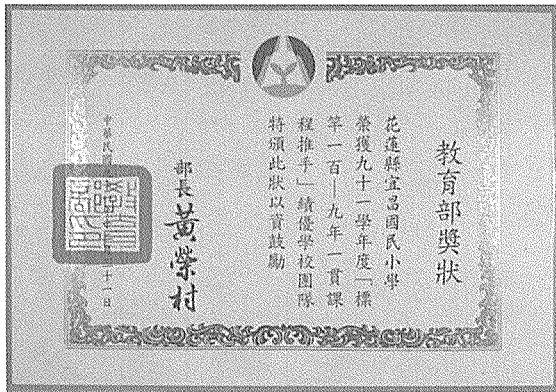 教育部獎狀
花蓮縣宜昌國民小學
榮獲九十一學年度「標
竿一百—九年一貫課
程推手」績優學校團隊
特頒此狀以資鼓勵
部長 黃榮村
中華民國
十一日